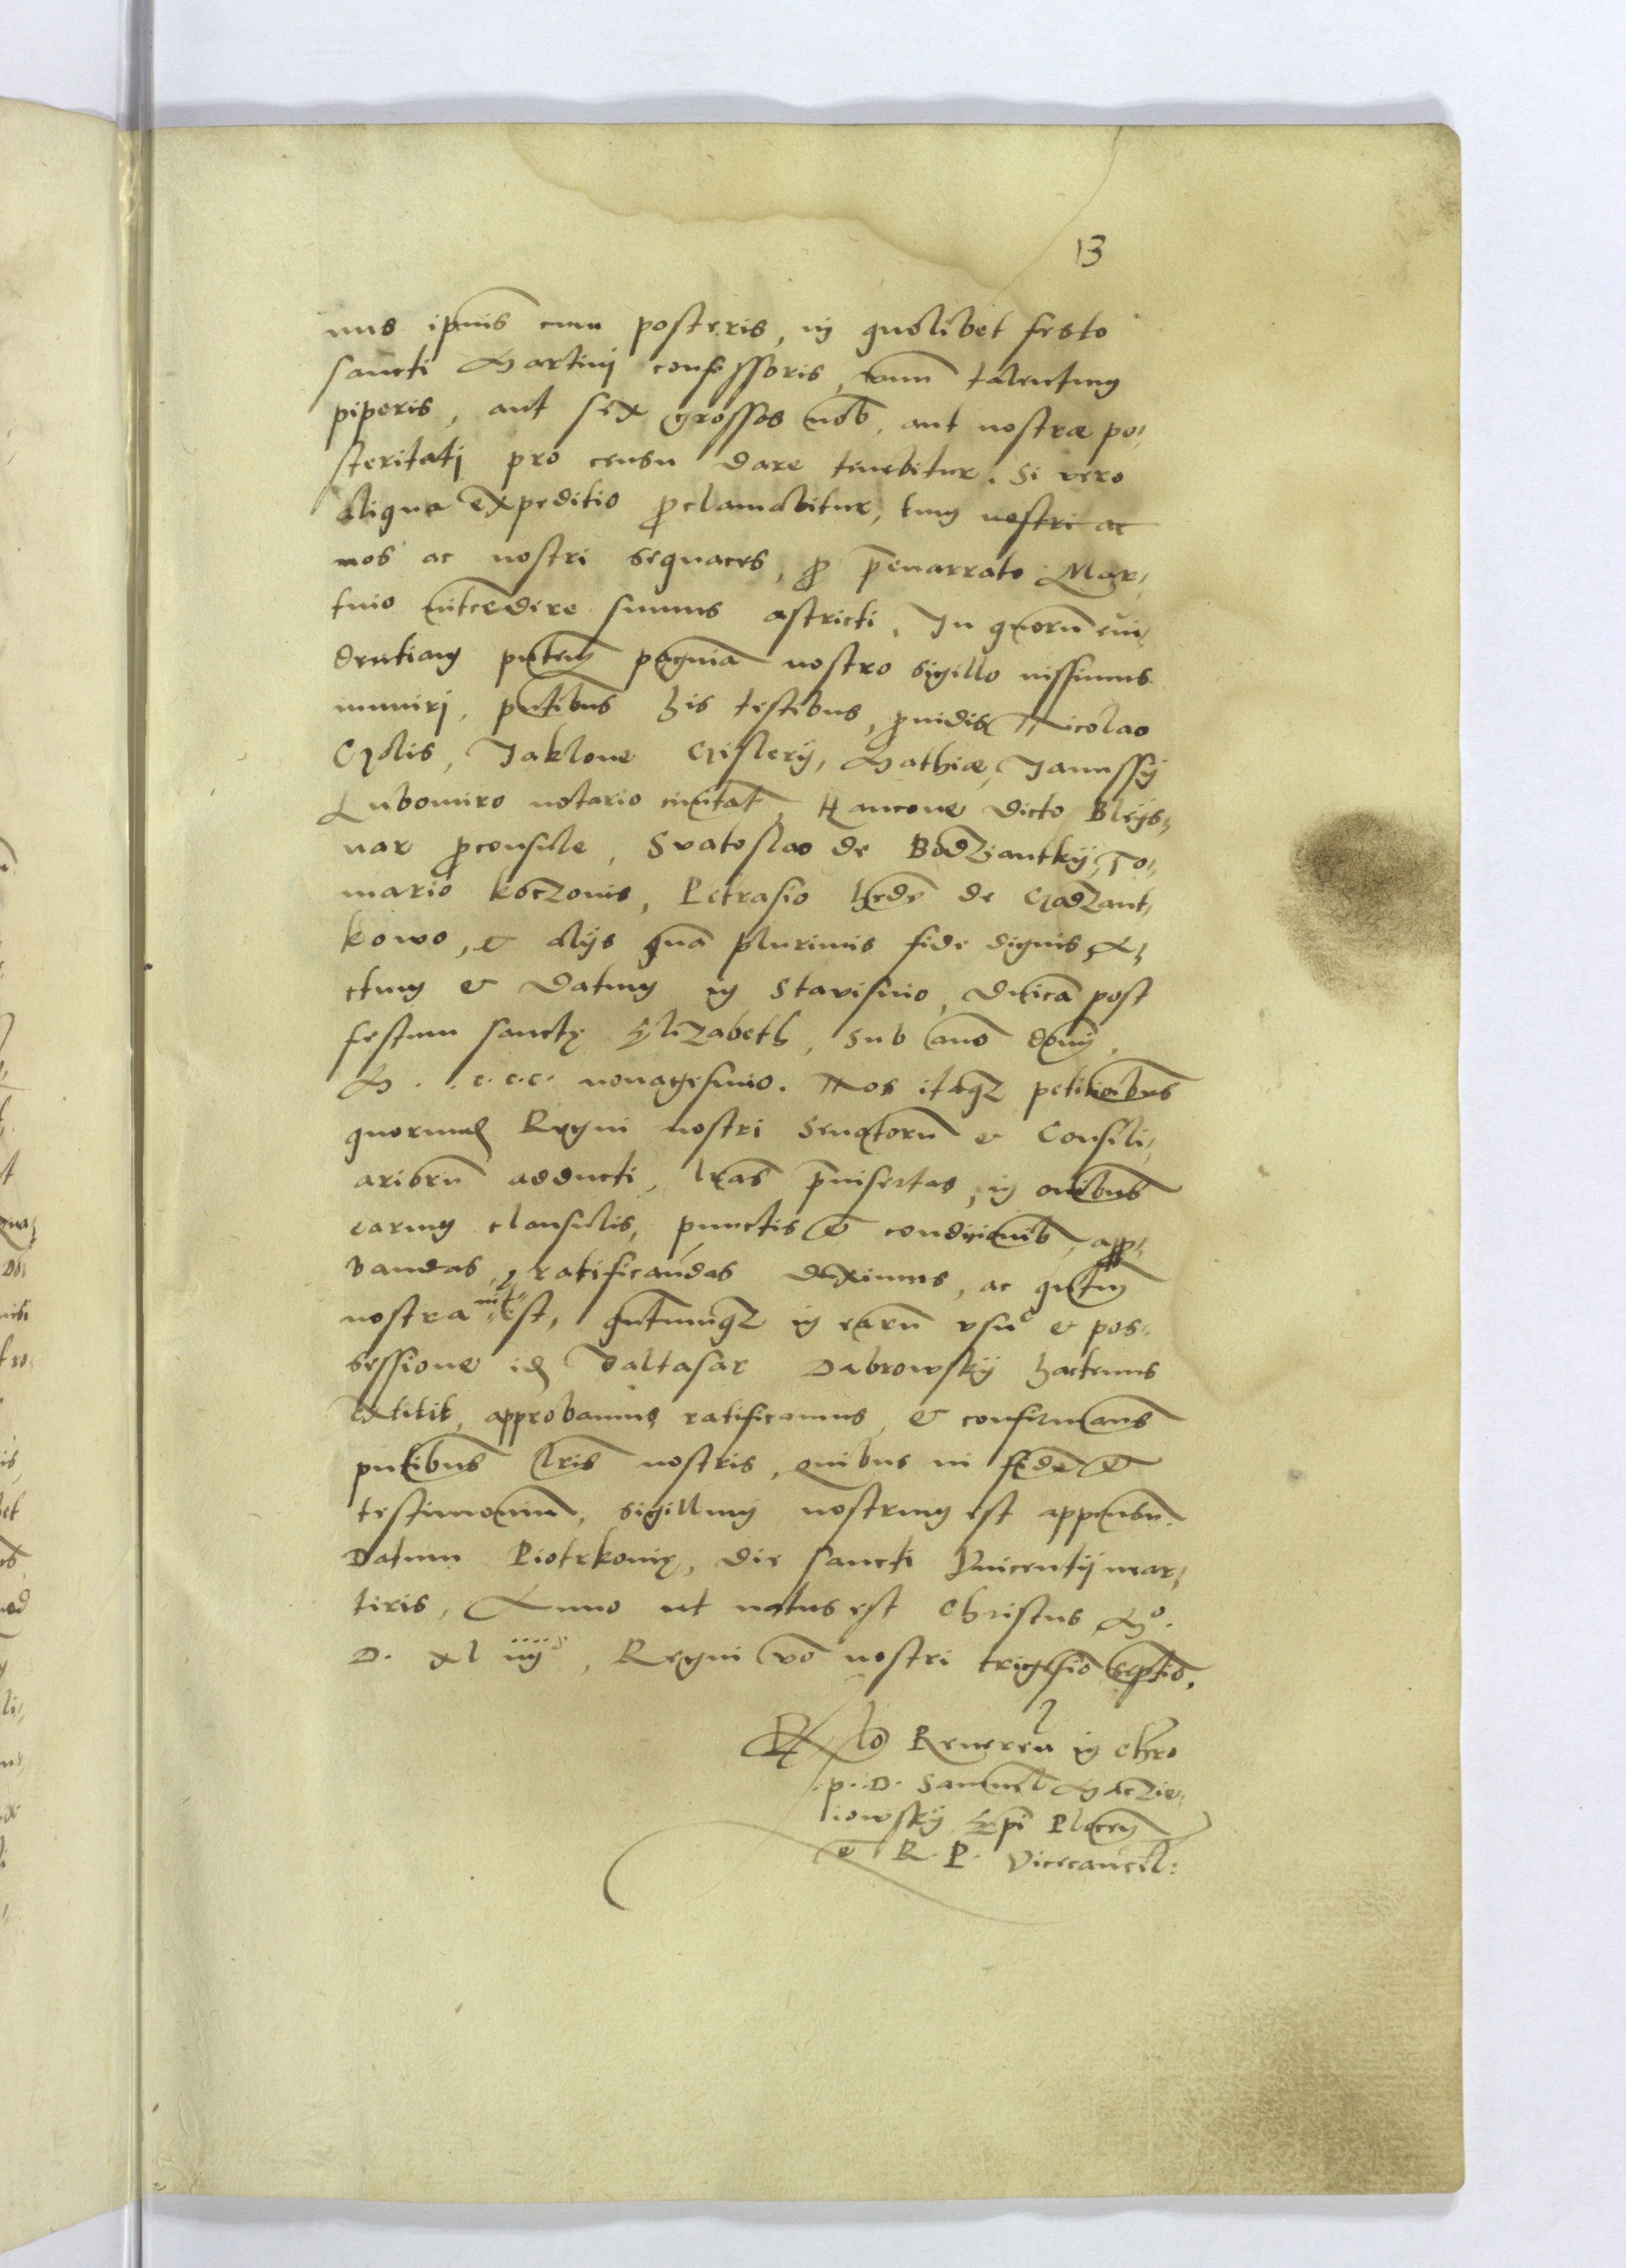 13
nus ipius cum posteris, in quolibet festo
sancti Martini confessoris, unu talentum
piperis, aut sex grossos nob, aut nostræ po-
steritati pro censu dare tenebitur. Si vero
aliqua expeditio pclamabitur, tum nostri ac
nos ac nostri sequaces, p penarrato Mar-
tino intcedere sumus astricti, In quoru evi-
dentiam pntem pagina nostro sigillo iussimus
muniri, pntibus his testibus, pvidis Nicolao
Czolis, Jaklone Czislerij, Mathiæ, Janussij
Lubomiro notario civitat, Hancone dicto Bleys-
nar pconsule, Svatoslao de Bodziantkij, To-
mario Koczonis, Petrasio hede de Czadzant-
kowo, & alijs qua plurimis fide dignis, A-
ctum & Datum in Stavisino, dnica post
festum sanctę Elizabeth, sub ano domi
M. c.c.c. nonagesimo. Nos itaqz petitioibus
quorumd Regni nostri Senatoru & Consili-
arioru adducti, lras pinsertas, in oibus
earum clausulis, punctis & condicionib, app-
bandas, & ratificandas duximus, ac qutm
nostra int est, qutumqz in earu usu & pos-
sessione id Baltasar Dabrowskij hactenus
extitit, approbamus ratificamus, & confirmams
pntibus lris nostris, quibus in fide &
testimoniu, sigillum nostrum est appensu.
Datum Piotrkovię, die sancti Vincentij mar-
tiris, Anno ut natus est Christus Mo.
D. xl iiijo, Regni vo nostri trigesio septio.
Rlo Reveren in Chro
p. D. Samuel Maczie-
iowskij Epi Plocen
& R. P. Vicecancel: